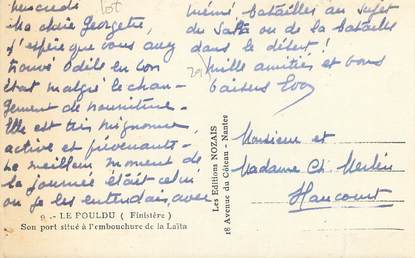 Mercredi
Ma chère Georgette,
J'espère que vous avez
trouvé Odile en bon
état malgré le chan-
gement de nourriture.
Elle est très mignonne,
active et prévenante.
Le meilleur moment de
la journée était celui
où je les entendais, avec
9 .- LE POULDU ( Finistère )
Son port situé à l'embouchure de la Laïta
Les Editions NOZAIS
18 Avenue du Gâteau - Nantes
batailles au sujet
du ou de la bataille
dans le désert !
Mille amitiés et bons
baisers
Monsieur et
Madame Ch. Merlin
Haucourt